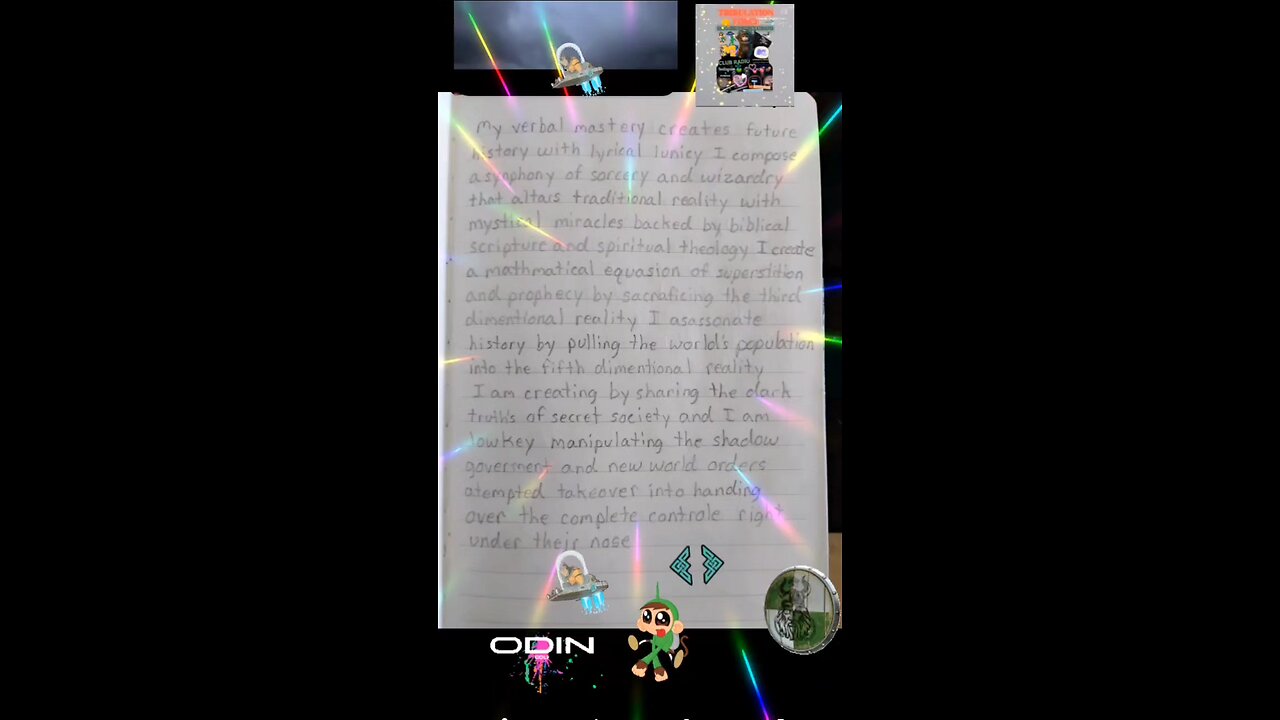 TRIBULATION
CLUB RADIO
My verbal mastery creates future
history with lyrical lunicy I compose
a symphony of sorcery and wizardry
that altars traditional reality with
mystical miracles backed by biblical
scripture and spiritual theology I create
a mathmatical equasion of superstition
and prophecy by sacraficing the third
dimentional reality I asassonate
history by pulling the world's population
into the fifth dimentional reality
I am creating by sharing the dark
truths of secret society and I am
lowkey manipulating the shadow
goverment and new world orders
atempted takeover into handing
over the complete controle right
under their nose
ODIN